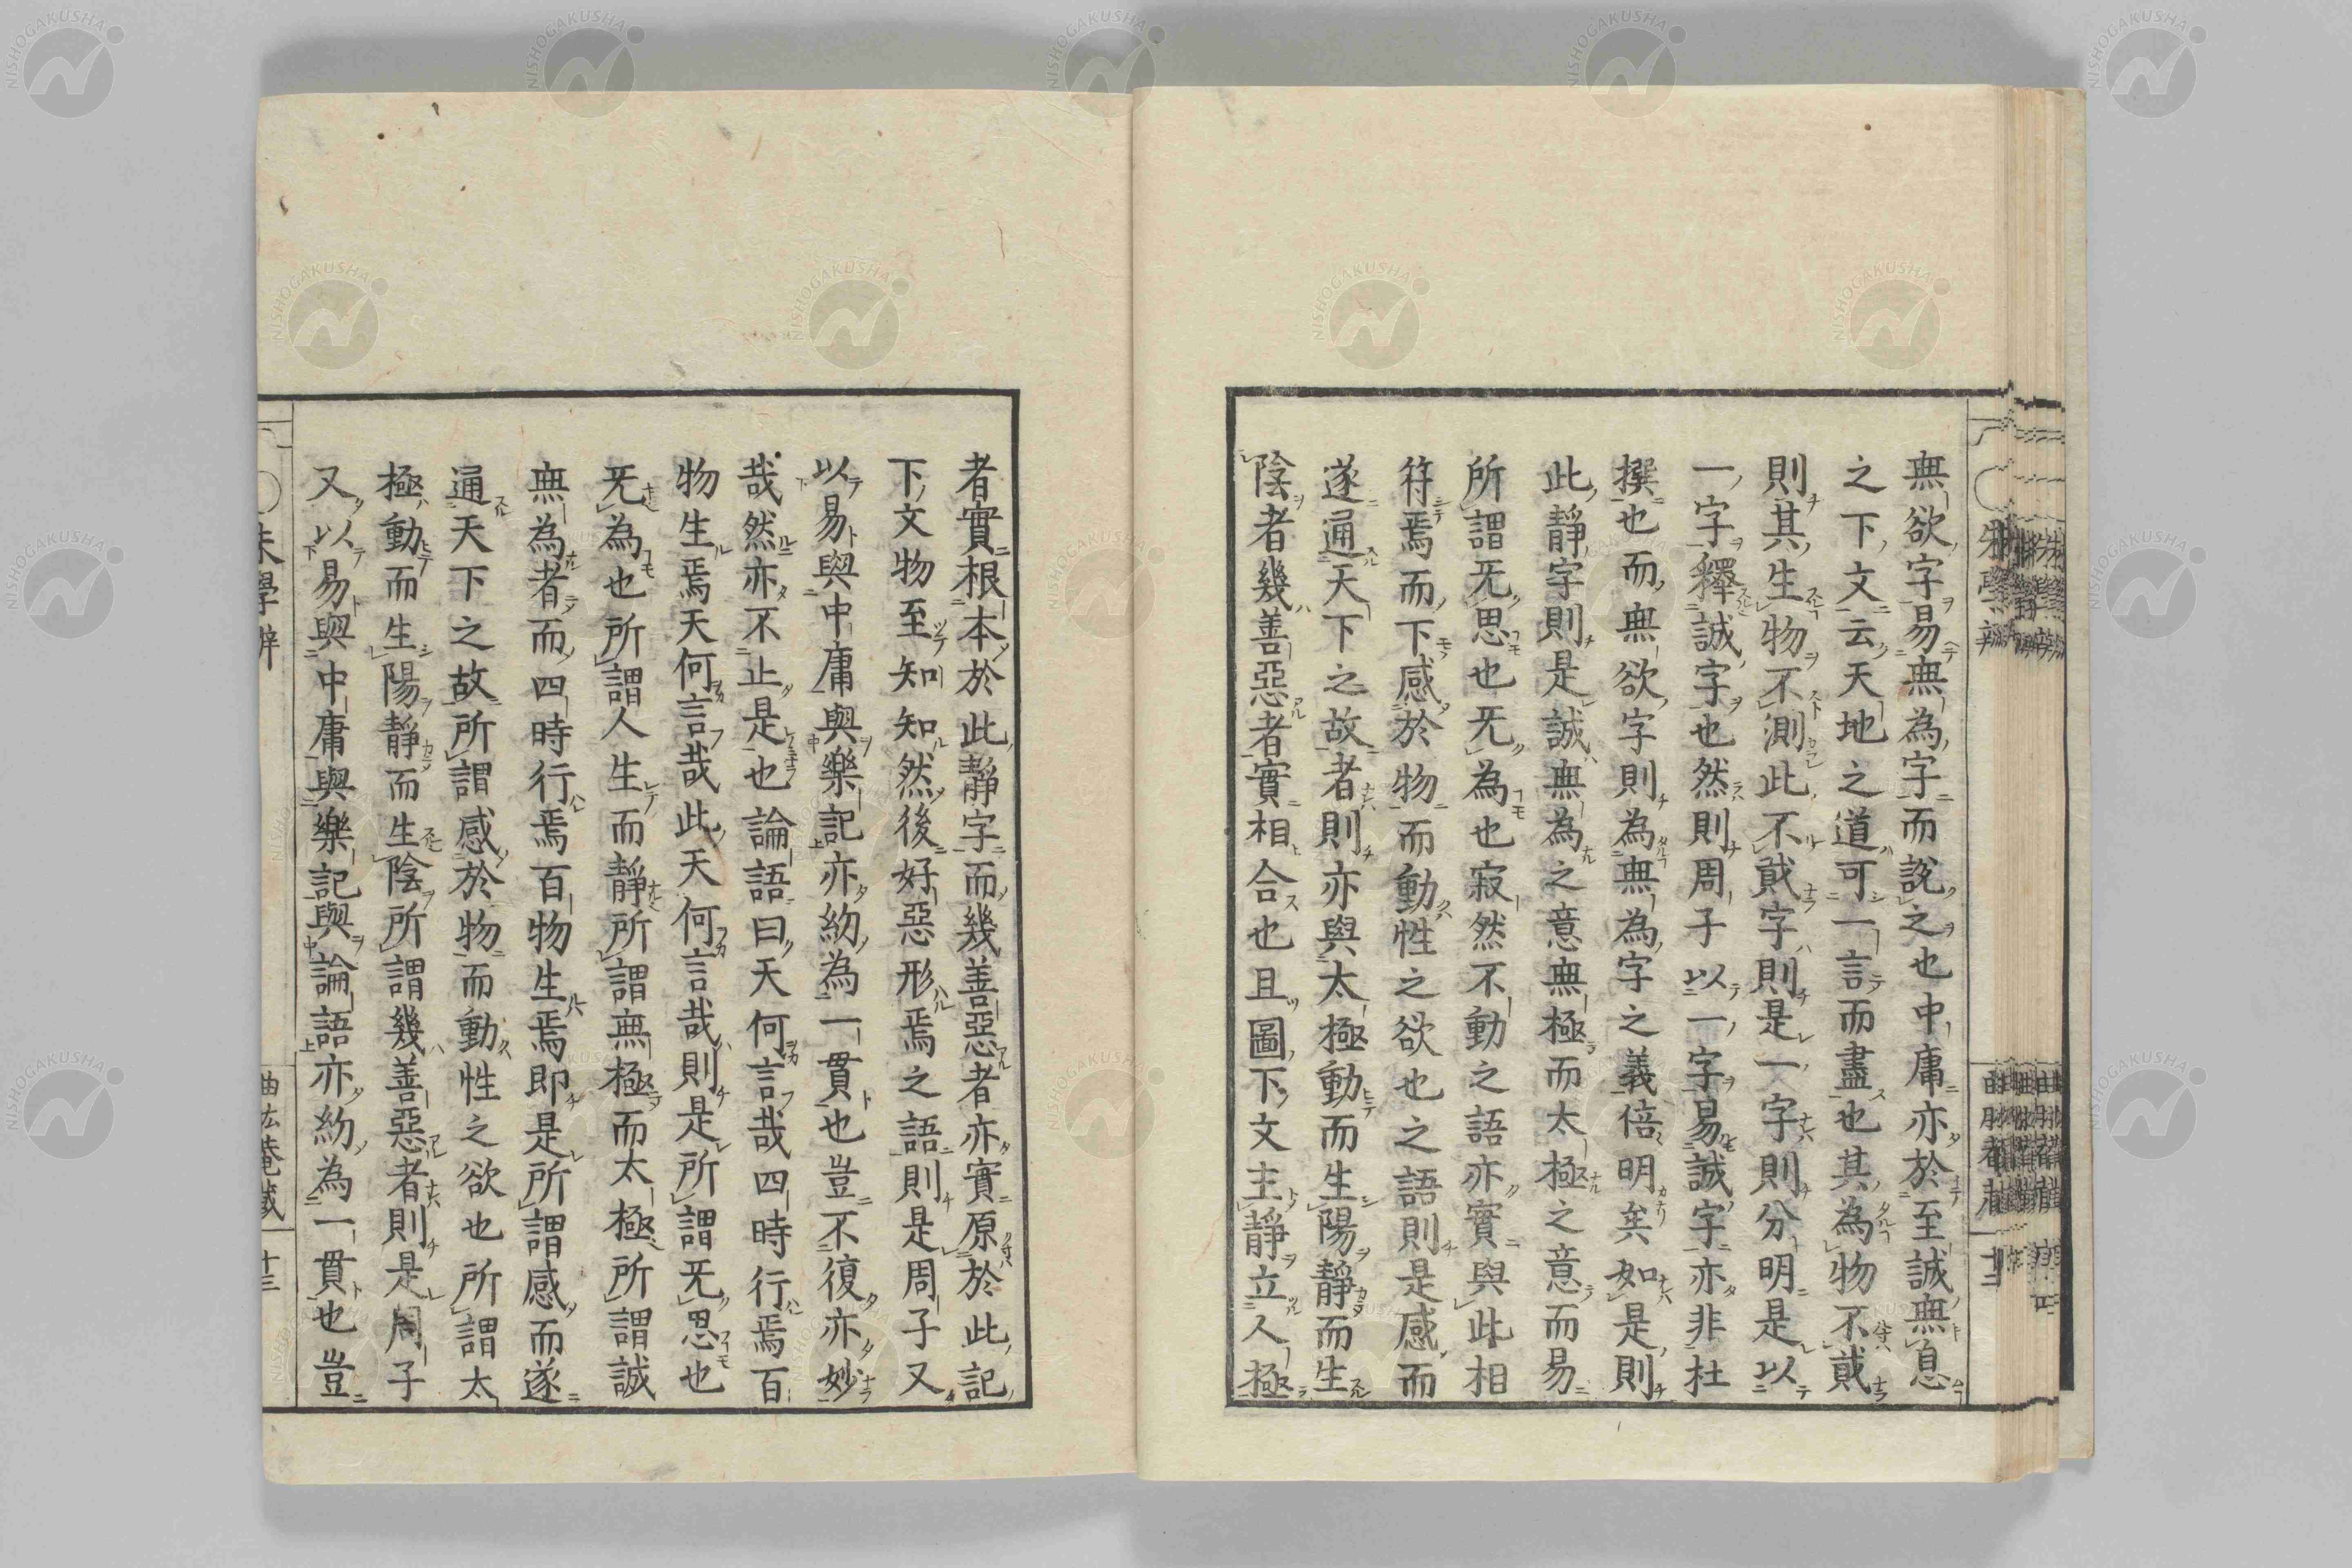 無欲字易無為字而説之也中庸亦於至誠無息
之下文云天地之道可一言而盡也其為物不貳
則其生物不測此不貳字則是一字則分明是以
一字釋誠字也然則周子以一字易誠字亦非杜
撰也而無欲字則為無為字之義倍明矣如是則
此靜字則是誠無為之意無極而太極之意而易
所謂旡思也旡為也寂然不動之語亦實與此相
符焉而下感於物而動性之欲也之語則是感而
遂通天下之故者則亦與太極動而生陽靜而生
陰者幾善惡者實相合也且圖下文主靜立人極
者實根本於此靜字而幾善惡者亦實原於此記
下文物至知知然後好惡形焉之語則是周子又
以易與中庸與樂記亦約為一貫也豈不復亦妙
哉然亦不止是也論語曰天何言哉四時行焉百
物生焉天何言哉此天何言哉則是所謂旡思也
旡為也所謂人生而靜所謂無極而太極所謂誠
無為者而四時行焉百物生焉即是所謂感而遂
通天下之故所謂感於物而動性之欲也所謂太
極動而生陽靜而生陰所謂幾善惡者則是周子
又以易與中庸與樂記與論語亦約為一貫也豈
朱學辨
十三
NISHOGAKUSHA